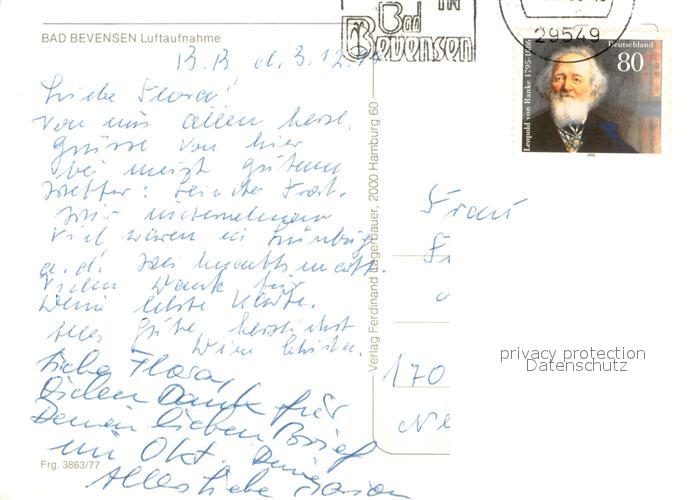 IN
Bad
Bevensen
29549
BAD BEVENSEN Luftaufnahme
Deutschland
80
Leopold von Ranke 1795-1886
B.B d. 3.12.
Liebe Flora!
von uns allen herzl.
Grüsse von hier
bei meist gutem
Wetter: leichter Frost.
Wir unternehmen
viel waren in Lüneburg
Vielen Dank für
Deine letzte Karte.
Alles Gute, herzlichst
Deine
Liebe Flora,
lieben Dank für
Deinen lieben Brief
im Okt.
Alles Liebe Marion
Frau
170
Verlag Ferdinand Lagerbauer, 2000 Hamburg 60
privacy protection
Datenschutz
Frg. 3863/77